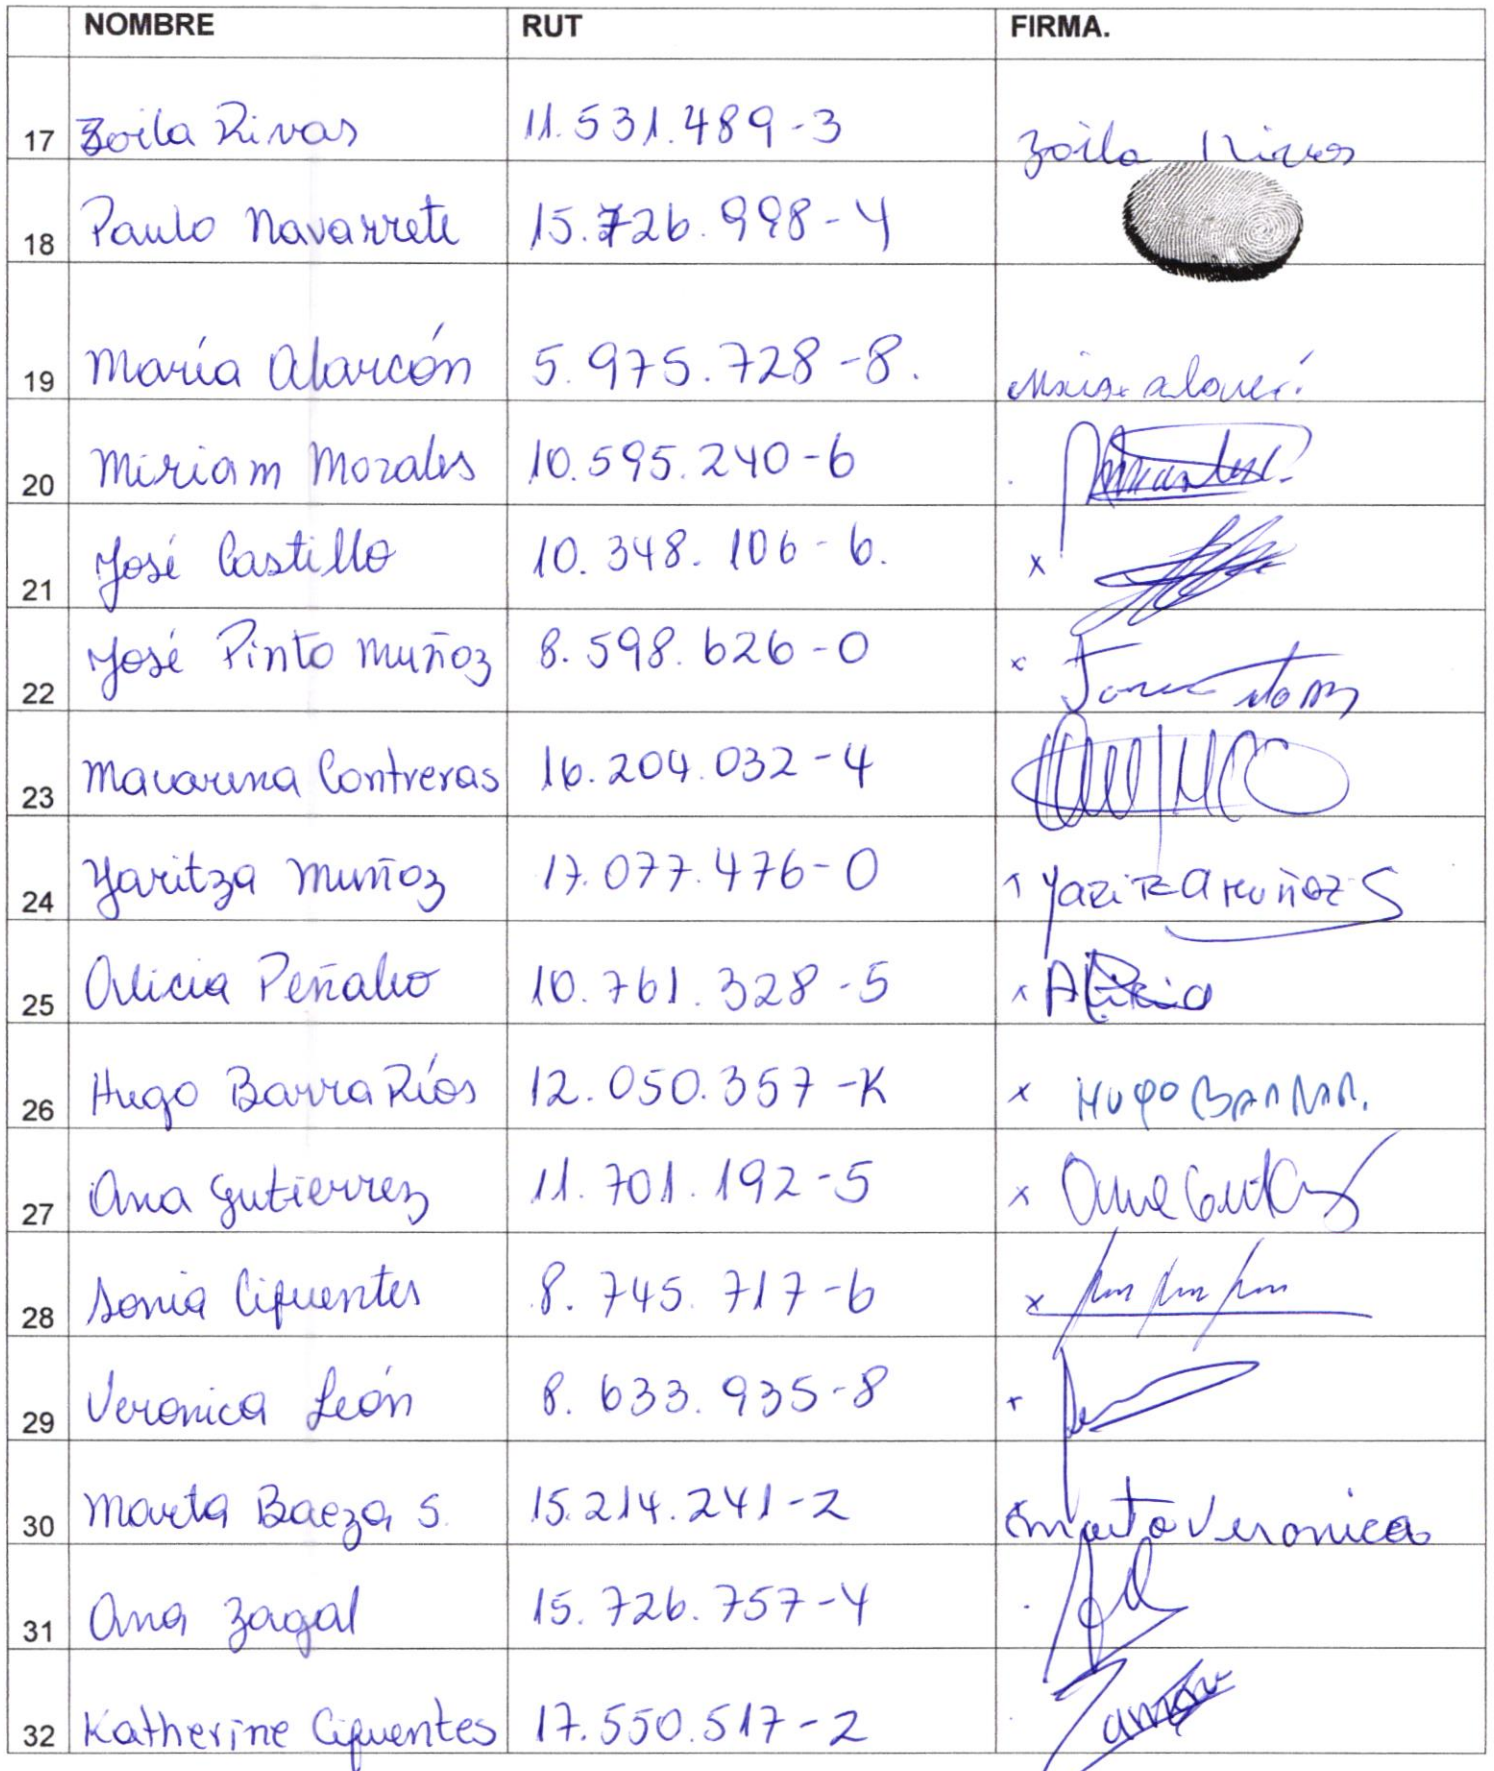 NOMBRE RUT FIRMA.
17 Zoila Rivas 11.531.489-3 Zoila Rivas
18 Paulo Navarrete 15.726.998-4
19 María Alarcón 5.975.728-8.
20 Miriam Morales 10.595.240-6
21 José Castillo 10.348.106-6. x
22 José Pinto Muñoz 8.598.626-0 x
23 Macarena Contreras 16.204.032-4
24 Yaritza Muñoz 17.077.476-0 Yaritza Muñoz S
25 Alicia Peñaloo 10.761.328-5 Alicia
26 Hugo Barra Ríos 12.050.357-K x Hugo Barra R.
27 Ana Gutierrez 11.701.192-5 x
28 Sonia Cifuentes 8.745.717-6 x
29 Veronica León 8.633.935-8
30 Marta Baeza S. 15.214.241-2 Marta Veronica
31 Ana Zagal 15.726.757-4
32 Katherine Cifuentes 17.550.517-2